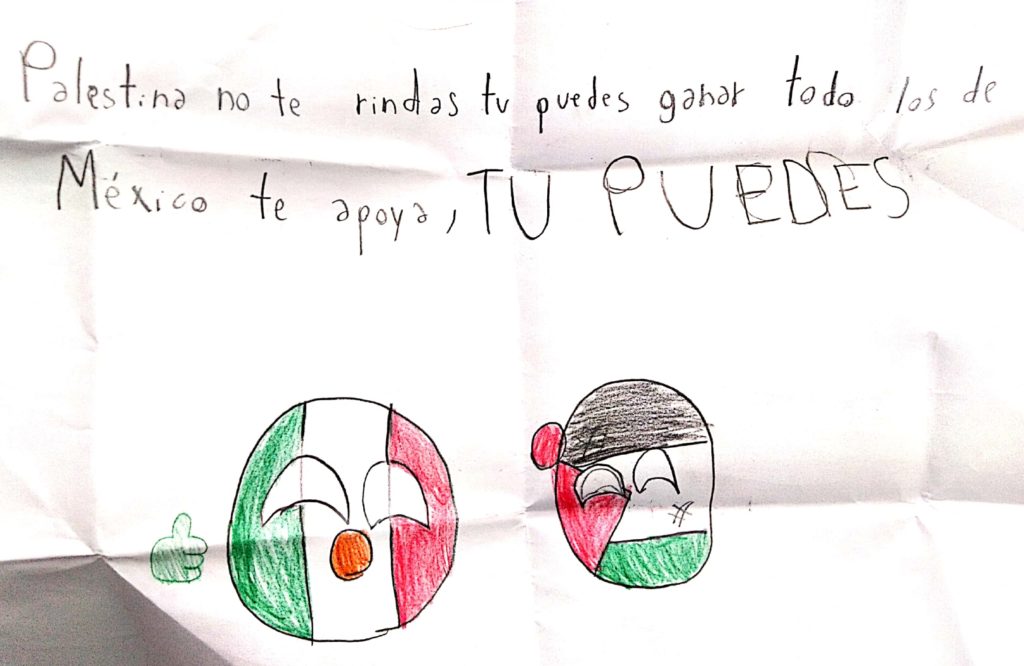 Palestina no te rindas tu puedes ganar todo los de
México te apoya, TU PUEDES